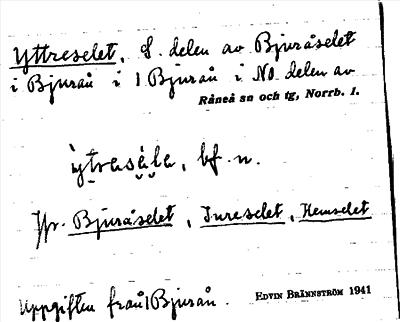 Yttreselet, S. delen av Bjuråselet
i Bjurån i 1 Bjurån i NO. delen av
Råneå sn och tg, Norrb. l.
ỳtrasèla, bf. n.
Jfr. Bjuråselet, Inreselet, Hemselet
Uppgiften från 1 Bjurån.
EDVIN BRÄNNSTRÖM 1941